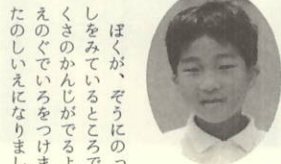 ぼくが、ぞうにのっ
しをみているところで
くさのかんじがでるよ
えのぐでいろをつけま
たのしいえになりまし